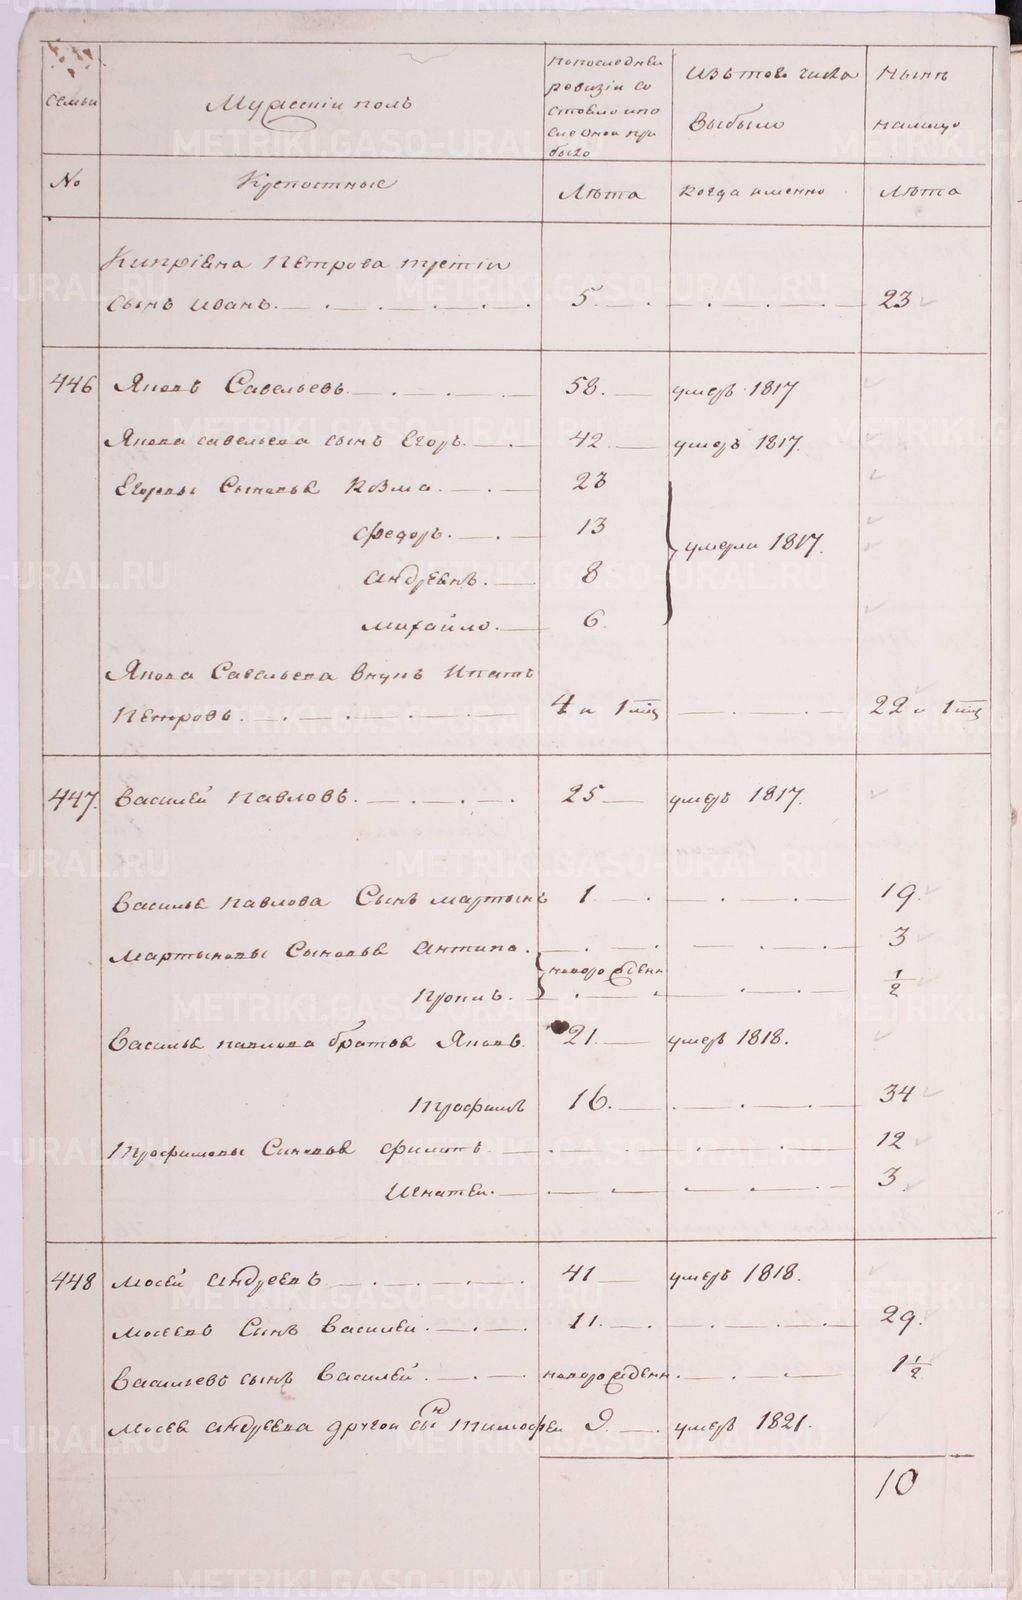 семьи
Мужескій полъ
Напоследнеи
ревизіи со
стояло ипо
сле оной при
было
Изътого числа
Выбыло
Нынѣ
налицо
No
Крепостные
Лѣта
Когда именно
Лѣта
Кипріена Петрова третіи
сынъ Иванъ. 5. 23
446 Яковъ Савельевъ 58. умеръ 1817
Якова савельева сынъ Егоръ. 42. умеръ 1817.
Егоровы Сыновья Козма. 23
Федоръ. 13
умерли 1817.
Андреянъ. 8
михайло. 6.
Якова Савельева внукъ Ипатъ
Петровъ. 4 и 1 мц 22 и 1 мц
447. Василей Павловъ. 25 умеръ 1817.
Василья Павлова Сынъ мартынъ 1 19.
Мартыновы Сыновья Антипа. 3
новорожденн
Прописъ. 1/2
Василья павлова братья Яковъ. 21. умеръ 1818.
Трофимъ 16. 34
Трофимовы Сыновья филипъ. 12
Игнатеи. 3.
448 Мосей Андреевъ 41 умеръ 1818.
Мосеевъ Сынъ Василеи. 11. 29.
Васильевъ сынъ Василей. новорожденн. 1 1/2
Мосея андреева другои сынъ Тимофеи 9. умеръ 1821.
10
METRIKI.GASO-URAL.RU